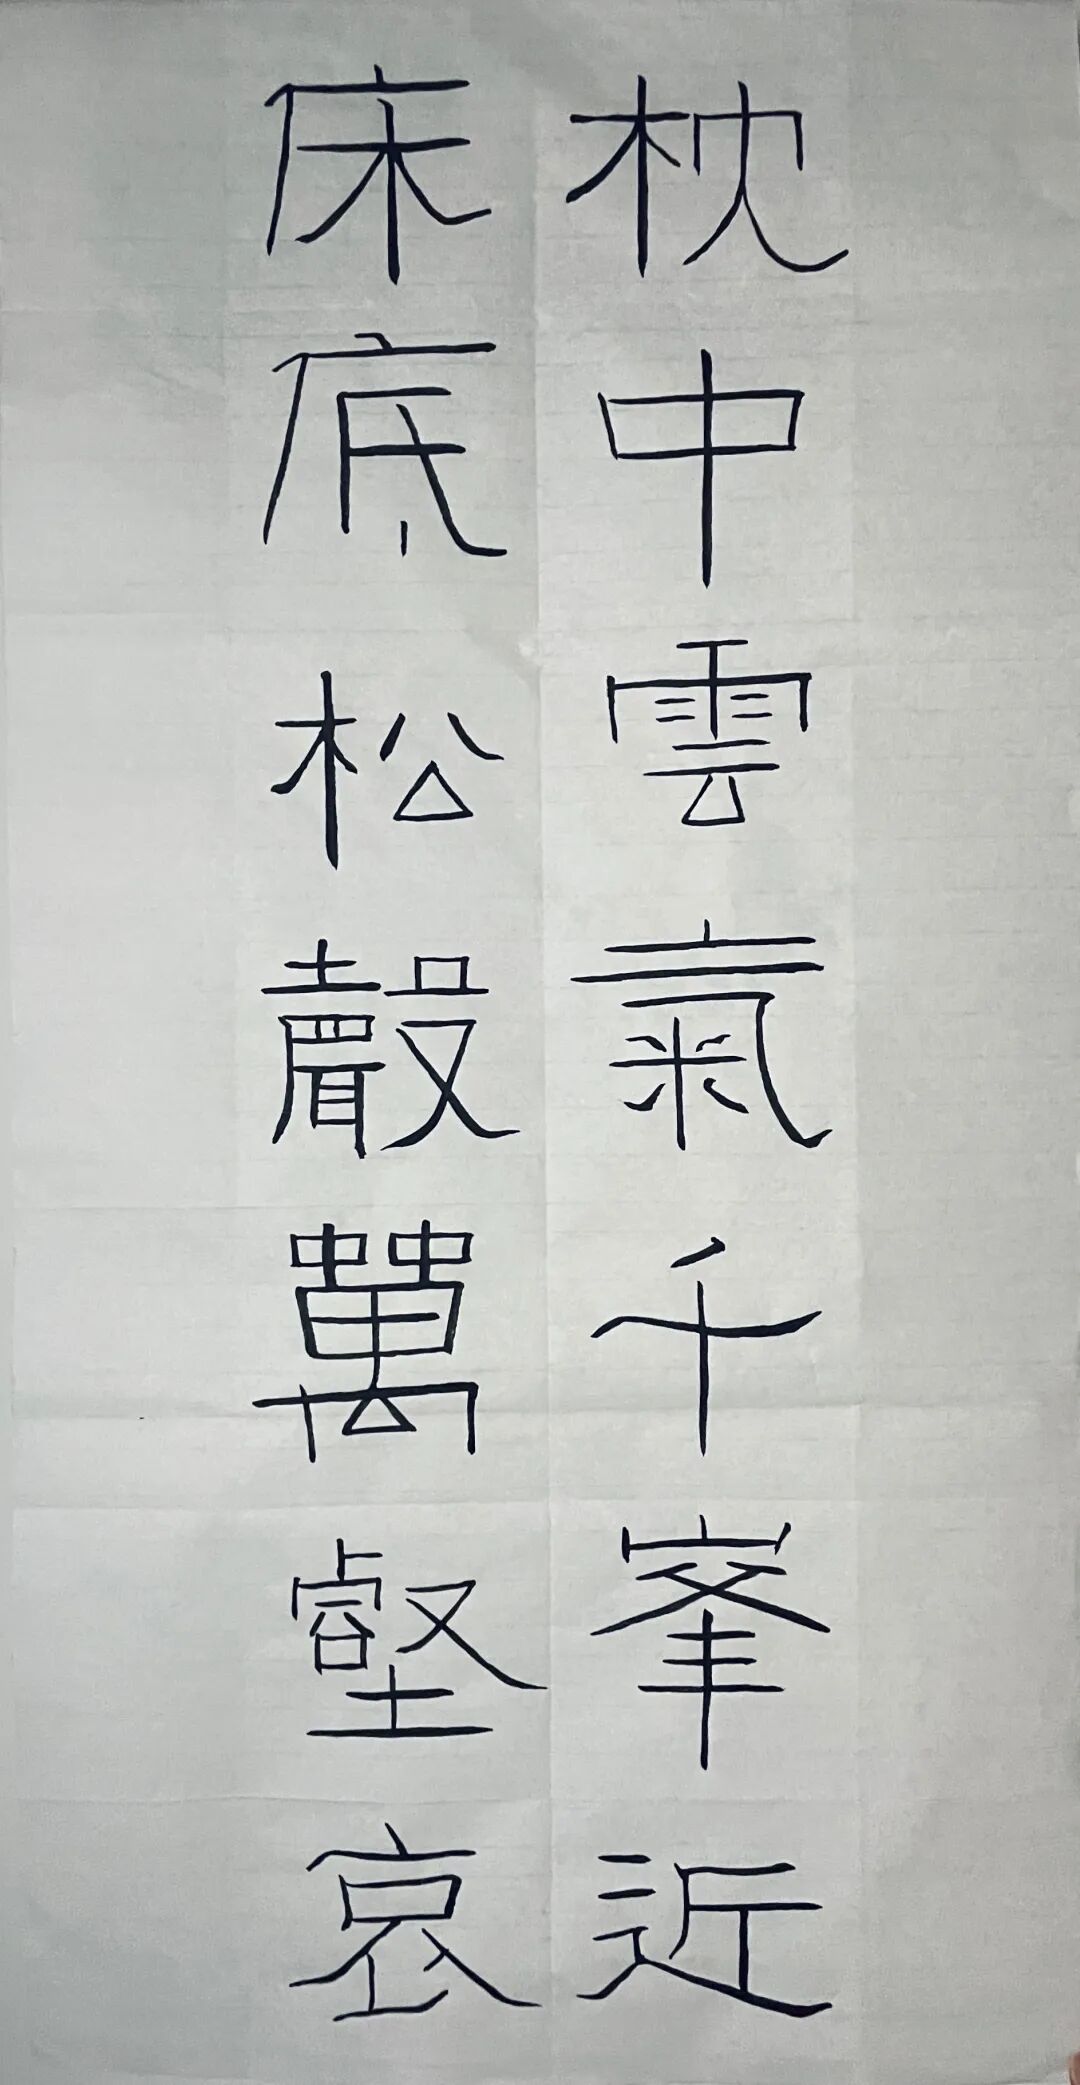 枕中雲氣千峯近
床底松聲萬壑哀